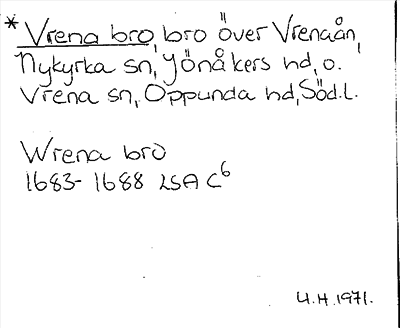 * Vrena bro, bro över Vrenaån,
Nykyrka sn, Jönåkers hd, o.
Vrena sn, Oppunda hd, Söd. l.
Wrena bro
1683-1688 LSA C6
U.H. 1971.